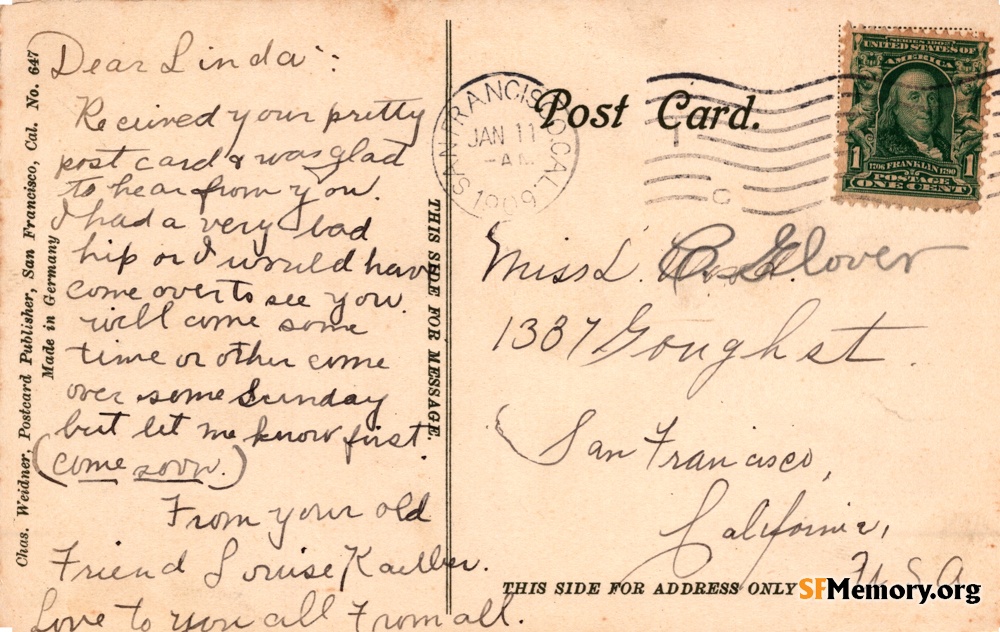 Chas. Weidner, Postcard Publisher, San Francisco, Cal. No. 647
Made in Germany
Dear Linda:
Recieved your pretty
post card & was glad
to hear from you.
I had a very bad
hip or I would have
come over to see you.
will come some
time or other come
over some Sunday
but let me know first.
(come soon.)
From your old
Friend Louise
Love to you all From all.
THIS SIDE FOR MESSAGE.
Post Card.
SAN FRANCISCO, CAL.
JAN 11
-AM
1909
SERIES 1902
UNITED STATES OF
AMERICA
1706 FRANKLIN 1790
POSTAGE
1 ONE CENT 1
Miss L. Glover
1387 Gough st.
San Francisco,
California,
U.S.A
THIS SIDE FOR ADDRESS ONLY
SFMemory.org